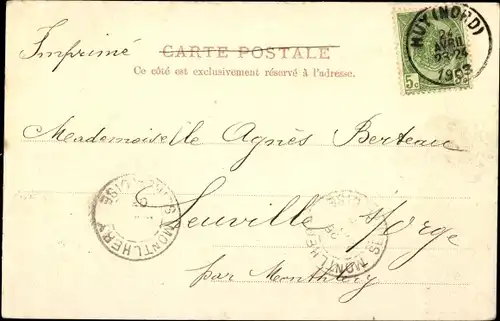 Imprimé
CARTE POSTALE
Ce côté est exclusivement réservé à l'adresse.
HUY (NORD)
24
AVRIL
23-24
1903
5c
Mademoiselle Agnès Berteau
Leuville s/Orge
par Montlhéry
MONTLHERY
MONTLHERY